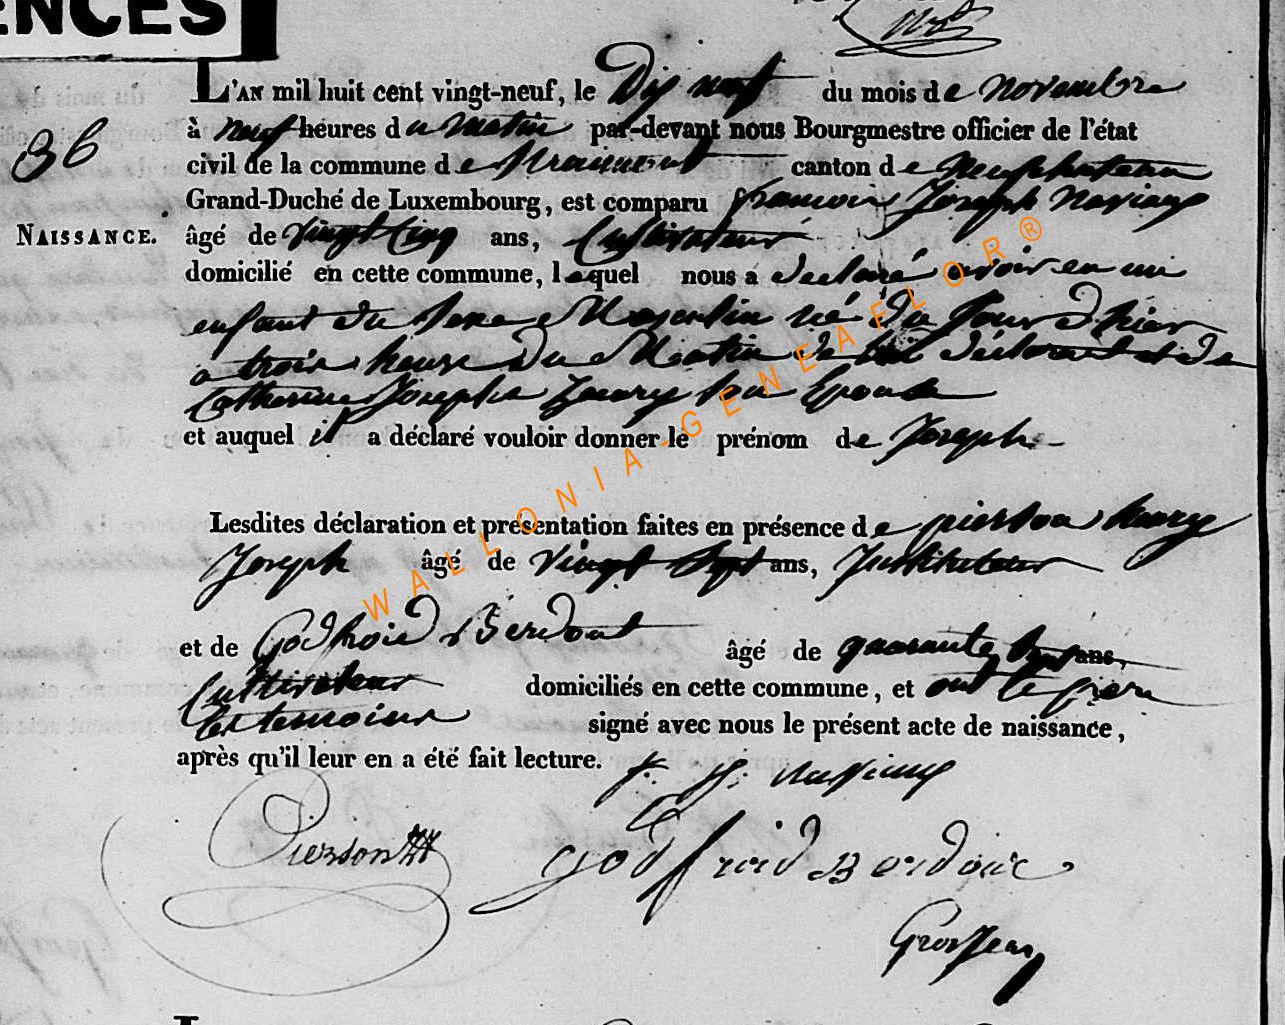 ENCES
L'AN mil huit cent vingt-neuf, le Dix neuf du mois de novembre
36
à neuf heures du matin par-devant nous Bourgmestre officier de l'état
civil de la commune de canton de Neufchateau
Grand-Duché de Luxembourg, est comparu francois Joseph
NAISSANCE. âgé de vingt Cinq ans, Cultivateur
domicilié en cette commune, lequel nous a declaré avoir eu un
enfant du Sexe Masculin né du Jour d'hier
a trois heure du Matin de lui déclarant et de
Catherine Josephe son Epouse
et auquel il a déclaré vouloir donner le prénom de Joseph
Lesdites déclaration et présentation faites en présence de pierson henry
Joseph âgé de vingt Sept ans, Instituteur
et de Godfroid Berdout âgé de quarante ans,
Cultivateur domiciliés en cette commune, et ont le père
les temoins signé avec nous le présent acte de naissance,
après qu'il leur en a été fait lecture.
Pierson
godfroid
GrosJean
WALLONIA-GENEAFLOR®